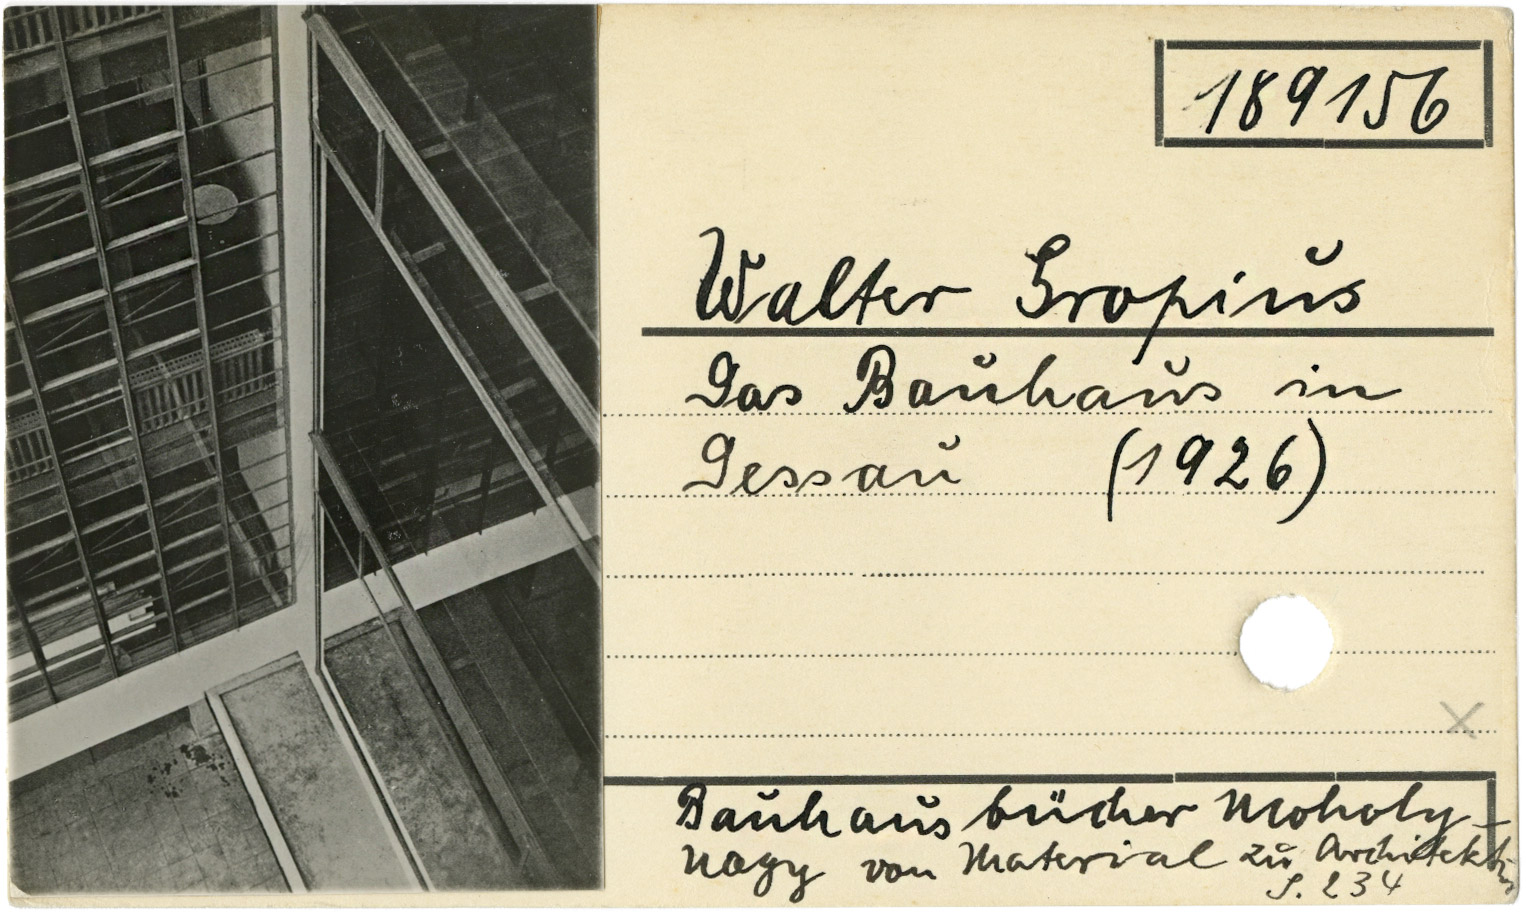 189156
Walter Gropius
Das Bauhaus in
Dessau (1926)
Bauhausbücher Moholy-
Nagy von Material zu Architektur
S. 234